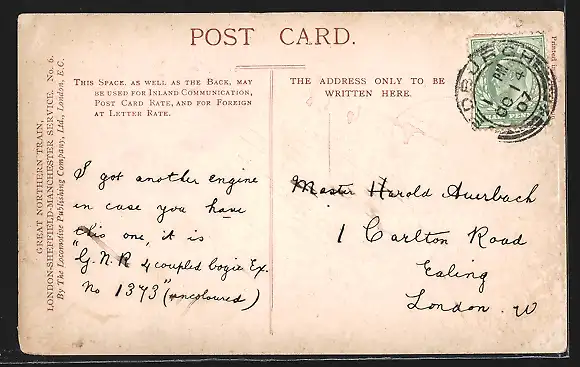 POST CARD.
THIS SPACE, AS WELL AS THE BACK, MAY
BE USED FOR INLAND COMMUNICATION,
POST CARD RATE, AND FOR FOREIGN
AT LETTER RATE.
THE ADDRESS ONLY TO BE
WRITTEN HERE.
GREAT NORTHERN TRAIN,
LONDON-SHEFFIELD-MANCHESTER SERVICE. No. 6.
By The Locomotive Publishing Company, Ltd., London, E.C.
I got another engine
in case you have
this one, it is
"G.N.R 4 coupled bogie Ex.
No 1373" (uncoloured)
Master Harold Auerbach
1 Carlton Road
Ealing
London. W
PM
OC 14
07
Printed